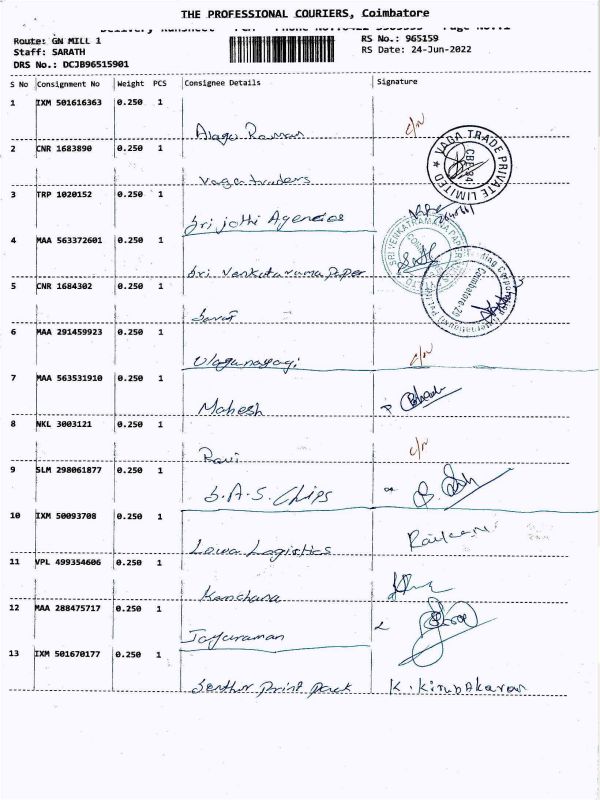 THE PROFESSIONAL COURIERS, Coimbatore
Route: GN MILL 1
RS No.: 965159
Staff: SARATH
RS Date: 24-Jun-2022
DRS No.: DCJB96515901
S No Consignment No Weight PCS Consignee Details Signature
1 IXM 501616363 0.250 1
Alagu Raman c/n
2 CNR 1683890 0.250 1
Vaga traders VAGA TRADE PRIVATE LIMITED
3 TRP 1020152 0.250 1
Sri jothi Agencies
4 MAA 563372601 0.250 1
Sri Venkatarama Paper SRI VENKATRAMANA PAPER
5 CNR 1684302 0.250 1
Coimbatore-29
6 MAA 291459923 0.250 1
Ulagunayagi c/n
7 MAA 563531910 0.250 1
Mahesh
8 NKL 3003121 0.250 1
Ravi c/n
9 SLM 298061877 0.250 1
S.A.S. Chips
10 IXM 50093708 0.250 1
Lowa Logistics
11 VPL 499354606 0.250 1
Kanchana
12 MAA 288475717 0.250 1
Jayaraman
13 IXM 501670177 0.250 1
Senthur Print Pack K. Kirubakaran